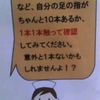 など、自分の足の指が
ちゃんと10本あるか、
1本1本触って確認
してみてください。
意外と1本ないかも
しれませんよ!?